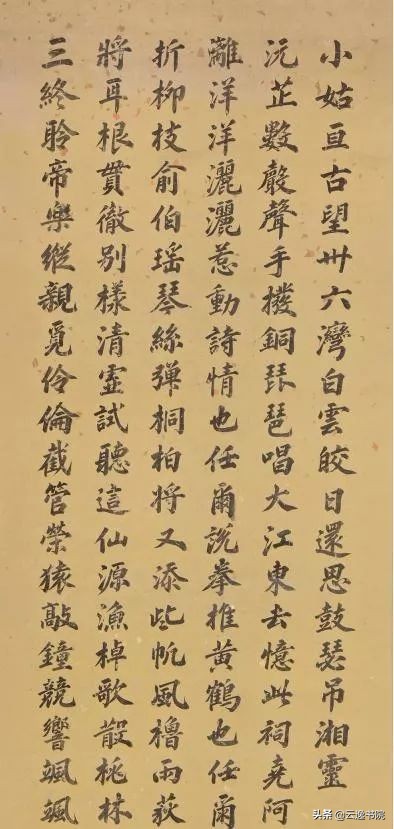 小姑亘古望卅六灣白雲皎日還思鼓瑟吊湘靈
沅芷數聲手撥銅琵琶唱大江東去憶此祠堯阿
離洋洋灑灑惹動詩情也任爾說拳推黃鶴也任爾
折柳枝俞伯瑶琴絲彈桐柏将又添些帆風櫓雨荻
將耳根貫徹别樣清靈試聽這仙源漁棹歌散桃林
三終聆帝樂縱親覓伶倫截管榮猿敲鐘競響颯颯
头条 @云逸书院